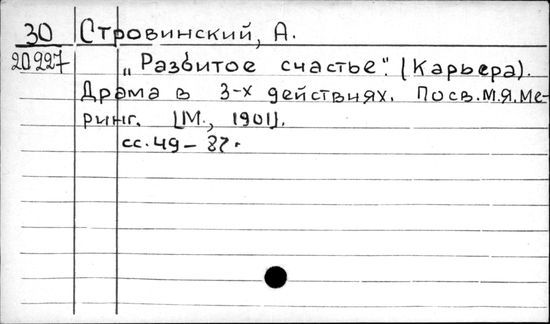 30 Стровинский, А.
20227 „Разбитое счастье". (Карьера).
Драма в 3-х действиях. Посв. М.Я. Ме-
ринг. [М., 1901].
сс. 49 – 87.